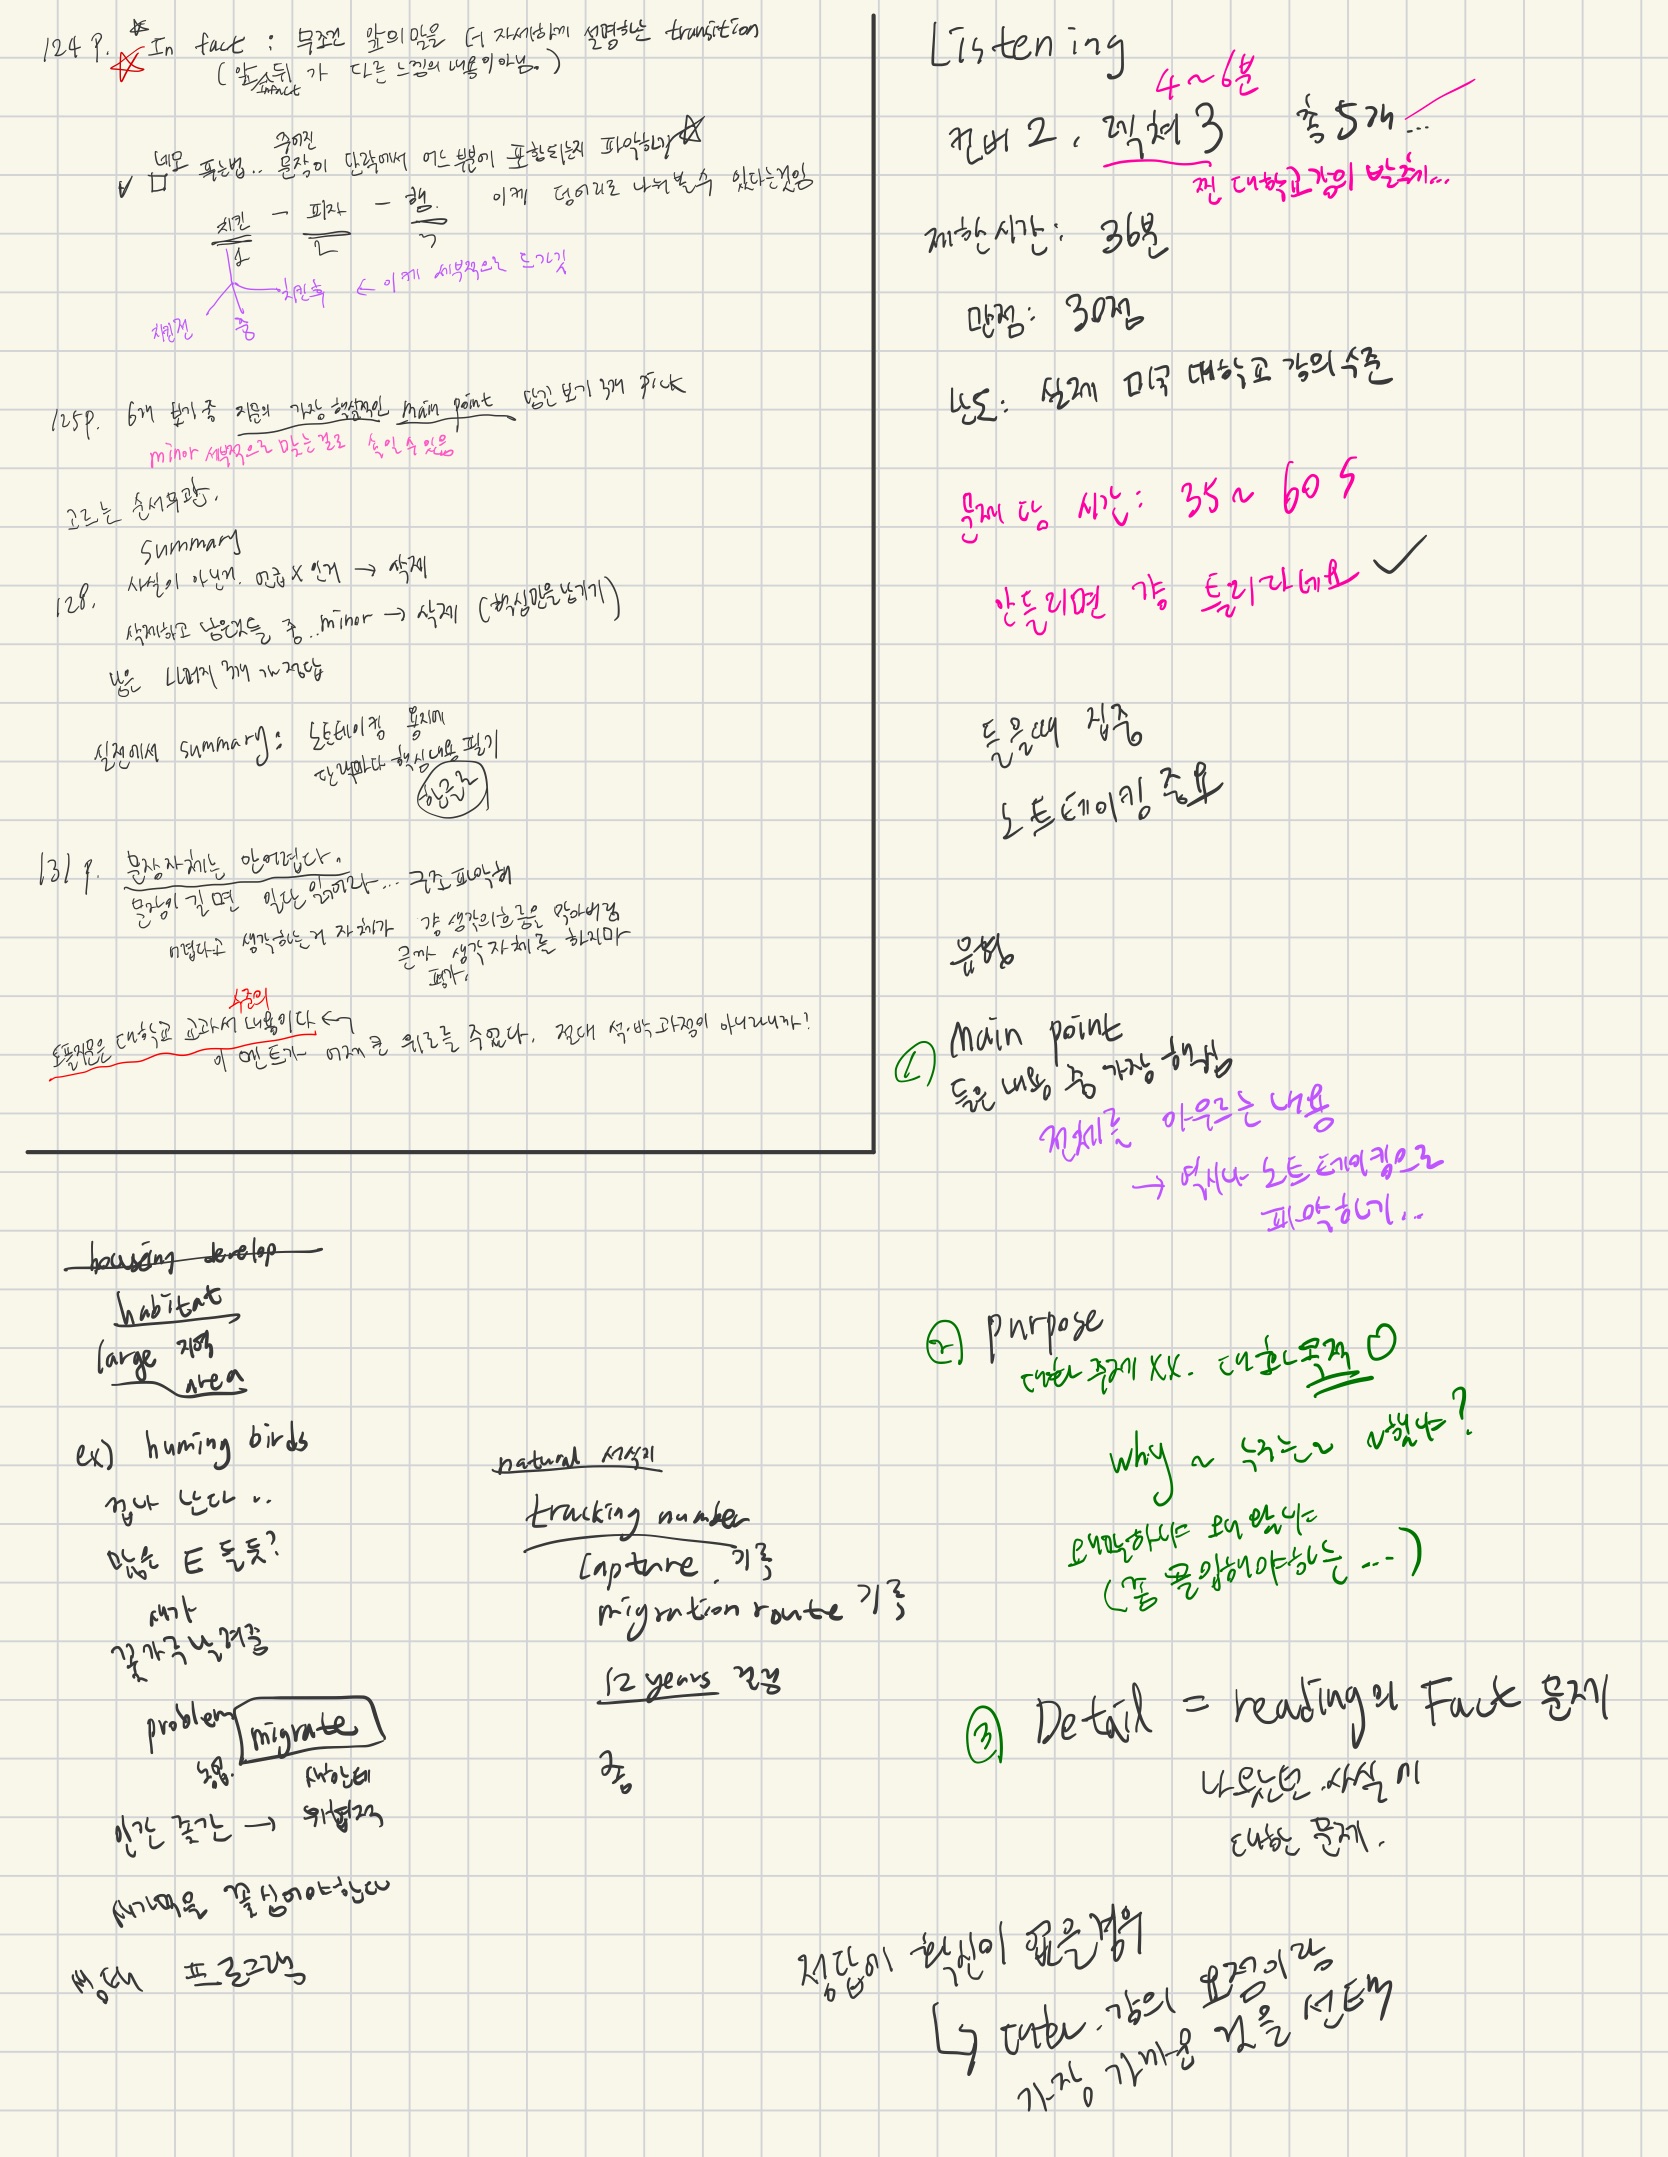 124 p. In fact : 무조건 앞의 말을 더 자세하게 설명하는 transition
(앞, 뒤가 다른 느낌의 내용이 아님.)
infact
네모 푸는법.. 주어진 문장이 단락에서 어느 부분에 포함되는지 파악하기
치킨 - 피자 - 햄. 이케 덩어리로 나눠볼수 있다는것임
1 2 3
치킨후 ← 이케 세부적으로 드가깃
치킨전 중
125p. 6개 보기 중 지문의 가장 핵심적인 main point 담긴 보기 3개 pick
minor 세부적으로 맞는걸로 속일 수 있음
고르는 순서무관.
summary
128. 사실이 아닌거. 언급 X 인거 → 삭제
삭제하고 남은것들 중.. minor → 삭제 (핵심만을 남기기)
남은 나머지 3개가 정답
실전에서 summary: 노트테이킹 용지에
단락마다 핵심내용 필기
한글로
131 p. 문장자체는 안어렵다.
문장이 길면 일단 읽어라... 구조파악해
어렵다고 생각하는거 자체가 걍 생각의흐름을 막아버림
큰까 생각자체를 하지마
평가.
수준의
토플지문은 대학교 교과서 내용이다 ←
이 멘트가 어제 큰 위로를 주었다. 절대 석·박 과정이 아니라니까?
housing develop
habitat
large 지역
area
ex) huming birds
겁나 난다..
많은 E 들듯?
새가
꽃가루날려줌
problem migrate
농업. 새한테
인간 출간 → 위협적
새가먹을 꽃심어야한다
생태 프로그램
natural 서식지
tracking number
capture. 기록
migration route 기록
12 years 걸림
줌
Listening
4~6분
컨버 2, 렉쳐 3 총 5개...
찐 대학교강의 발췌...
제한시간: 36분
만점: 30점
난도: 실제 미국 대학교 강의수준
문제 당 시간: 35~60 s
안들리면 걍 틀리라네요
들을때 집중
노트테이킹 중요
유형
① main point
들은 내용 중 가장 핵심
전체를 아우르는 내용
→ 역시나 노트테이킹으로
파악하기...
② purpose
대화 주제 XX. 대화목적 O
why ~ 누구는~ ~했나?
왜말하냐 왜 왔냐
(쫌 몰입해야하는 ...)
③ Detail = reading의 Fact 문제
나오는 사실에
대한 문제.
정답에 확신이 없는경우
↳ 대화. 강의 요점이랑
가장 가까운 것을 선택